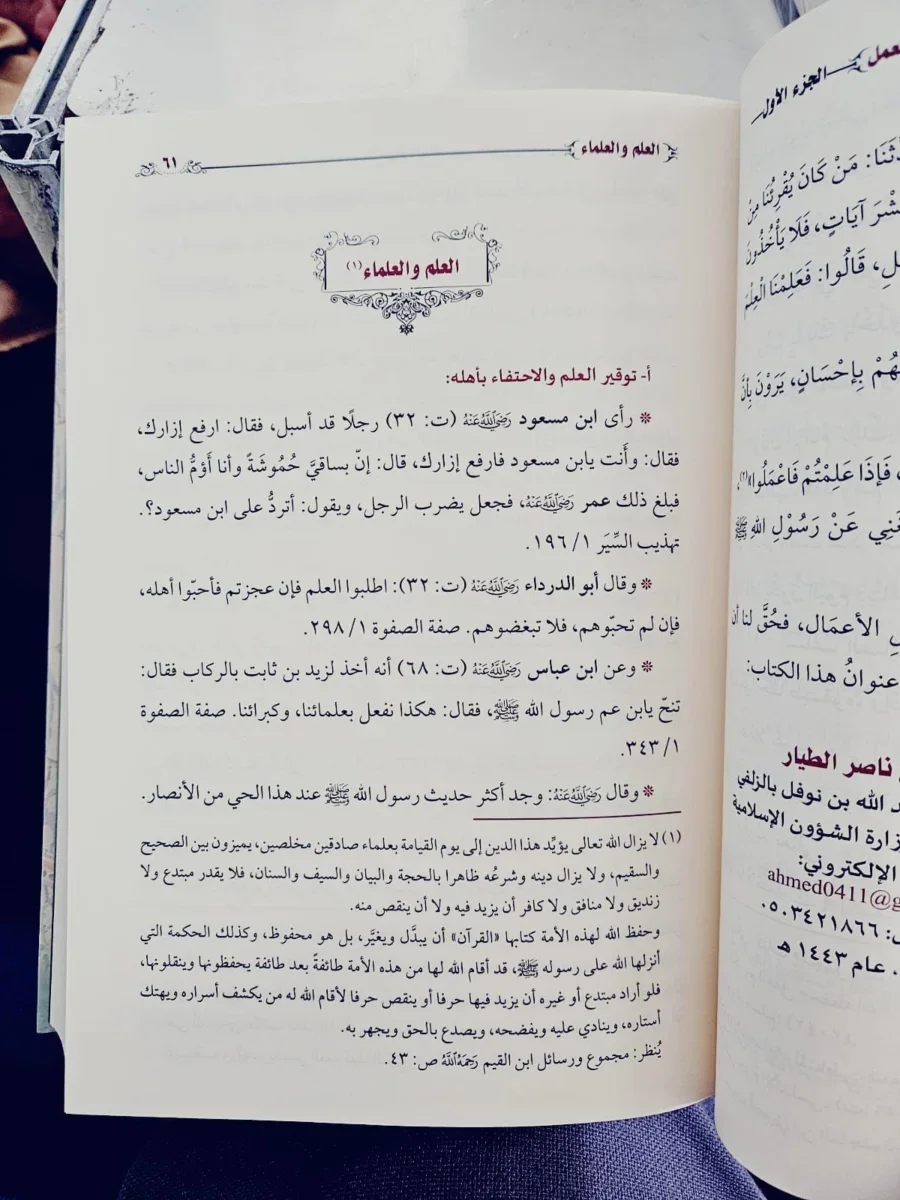 العلم والعلماء
٦١
العلم والعلماء(١)
أ- توقير العلم والاحتفاء بأهله:
* رأى ابن مسعود رَضِوَاللَّهُعَنْهُ (ت: ٣٢) رجلًا قد أسبل، فقال: ارفع إزارك،
فقال: وأَنت يابن مسعود فارفع إزارك، قال: إنّ بساقيَّ حُمُوشَةً وأنا أؤمُّ الناس،
فبلغ ذلك عمر رَضِوَاللَّهُعَنْهُ، فجعل يضرب الرجل، ويقول: أتردُّ على ابن مسعود؟.
تهذيب السِّيَر ١/ ١٩٦.
* وقال أبو الدرداء رَضِوَاللَّهُعَنْهُ (ت: ٣٢): اطلبوا العلم فإن عجزتم فأحبّوا أهله،
فإن لم تحبّوهم، فلا تبغضوهم. صفة الصفوة ١/ ٢٩٨.
* وعن ابن عباس رَضِوَاللَّهُعَنْهُ (ت: ٦٨) أنه أخذ لزيد بن ثابت بالركاب فقال:
تنحّ يابن عم رسول الله ﷺ، فقال: هكذا نفعل بعلمائنا، وكبرائنا. صفة الصفوة
١/ ٣٤٣.
* وقال رَضِوَاللَّهُعَنْهُ: وجد أكثر حديث رسول الله ﷺ عند هذا الحي من الأنصار.
(١) لا يزال الله تعالى يؤيِّد هذا الدين إلى يوم القيامة بعلماء صادقين مخلصين، يميزون بين الصحيح
والسقيم، ولا يزال دينه وشرعُه ظاهرا بالحجة والبيان والسيف والسنان، فلا يقدر مبتدع ولا
زنديق ولا منافق ولا كافر أن يزيد فيه ولا أن ينقص منه.
وحفظ الله لهذه الأمة كتابها «القرآن» أن يبدَّل ويغيَّر، بل هو محفوظ، وكذلك الحكمة التي
أنزلها الله على رسوله ﷺ، قد أقام الله لها من هذه الأمة طائفةً بعد طائفة يحفظونها وينقلونها،
فلو أراد مبتدع أو غيره أن يزيد فيها حرفا أو ينقص حرفا لأقام الله له من يكشف أسراره ويهتك
أستاره، وينادي عليه ويفضحه، ويصدع بالحق ويجهر به.
يُنظر: مجموع ورسائل ابن القيم رَحِمَهُ اللَّهُ ص: ٤٣.
الجزء الأول
مَنْ كَانَ يُقْرِئُنَا مِنْ
آيَاتٍ، فَلَا يَأْخُذُونَ
قَالُوا: فَعَلِمْنَا الْعِلْمَ
بِإِحْسَانٍ، يَرَوْنَ بِأَنَّ
فَإِذَا عَلِمْتُمْ فَاعْمَلُوا»(٢).
عَنْ رَسُوْلِ اللهِ ﷺ
الأعمَال، فحُقَّ لنا أن
عنوانُ هذا الكتاب:
ناصر الطيار
الله بن نوفل بالزلفي
الشؤون الإسلامية
الإلكتروني:
ahmed0411@g
٠٥٠٣٤٢١٨٦٦
عام ١٤٤٣ هـ